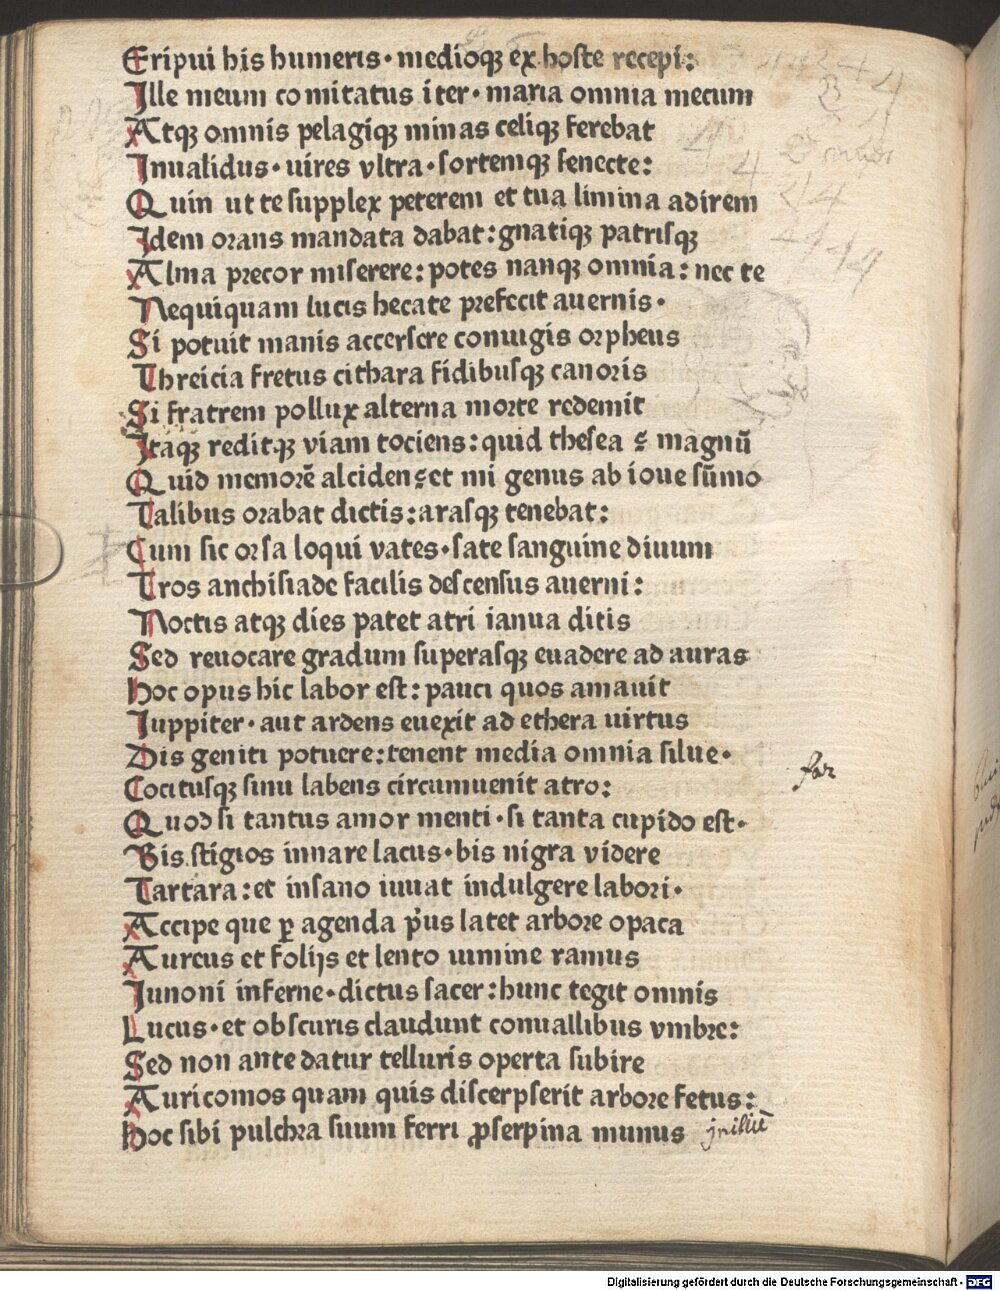 Eripui his humeris · medioqꝫ ex hoste recepi:
Ille meum comitatus iter · maria omnia mecum
Atqꝫ omnis pelagiqꝫ minas celiqꝫ ferebat
Inualidus · uires vltra · sortemqꝫ senecte:
Quin ut te supplex peterem et tua limina adirem
Idem orans mandata dabat: gnatiqꝫ patrisqꝫ
Alma precor miserere: potes nanqꝫ omnia: nec te
Nequiquam lucis hecate prefecit auernis ·
Si potuit manis accersere coniugis orpheus
Threicia fretus cithara fidibusqꝫ canoris
Si fratrem pollux alterna morte redemit
Itaqꝫ reditqꝫ viam tociens: quid thesea ꝫ magnū
Quid memorē alciden ꝫ et mi genus ab ioue sūmo
Talibus orabat dictis: arasqꝫ tenebat:
Cum sic orsa loqui vates · sate sanguine diuum
Tros anchisiade facilis descensus auerni:
Noctis atqꝫ dies patet atri ianua ditis
Sed reuocare gradum superasqꝫ euadere ad auras
Hoc opus hic labor est: pauci quos amauit
Iuppiter · aut ardens euexit ad ethera uirtus
Dis geniti potuere: tenent media omnia silue ·
Cocitusqꝫ sinu labens circumuenit atro:
Quod si tantus amor menti · si tanta cupido est ·
Bis stigios innare lacus · bis nigra videre
Tartara: et insano iuuat indulgere labori ·
Accipe que ꝑ agenda pꝰus latet arbore opaca
Aureus et folijs et lento uimine ramus
Iunoni inferne · dictus sacer: hunc tegit omnis
Lucus · et obscuris claudunt conuallibus vmbre:
Sed non ante datur telluris operta subire
Auricomos quam quis discerpserit arbore fetus:
Hoc sibi pulchra suum ferri ꝓserpina munus
Digitalisierung gefördert durch die Deutsche Forschungsgemeinschaft · DFG